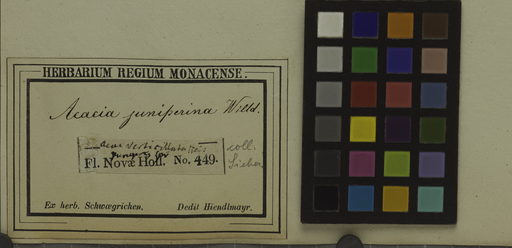 HERBARIUM REGIUM MONACENSE.
Acacia juniperina Willd.
Acac. verticillata
Fl. Novæ Holl. No. 449.
coll.
Sieber
Ex herb. Schwægrichen. Dedit Hiendlmayr.